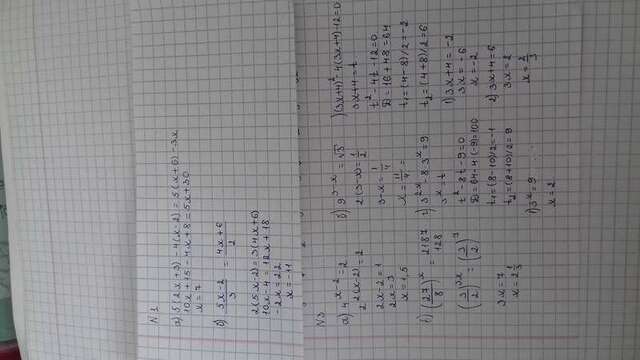 N 1
а) 5(2x+3) - 4(x-2) = 5(x+6) - 3x
10x+15 - 4x+8 = 5x+30
x = 7
б) 5x-2 / 3 = 4x+6 / 2
2(5x-2) = 3(4x+6)
10x-4 = 12x+18
-2x = 22
x = -11
)(3x+4)² - 4(3x+4) - 12 = 0
3x+4 = t
t² - 4t - 12 = 0
D = 16+48 = 64
t₁ = (4-8)/2 = -2
t₂ = (4+8)/2 = 6
1) 3x+4 = -2
3x = -6
x = -2
2) 3x+4 = 6
3x = 2
x = 2/3
N3
а) 4^(x-2) = 2
2^(2(x-2)) = 2
2x-2 = 1
2x = 3
x = 1,5
б) 9^(3-x) = √3
2(3-x) = 1/2
3-x = 1/4
x = 11/4 =
(27/8)^x = 2187/128
(3/2)^(3x) = (3/2)^7
3x = 7
x = 2 1/3
3^(2x) - 8·3^x = 9
3^x = t
t² - 8t - 9 = 0
D = 64 - 4·(-9) = 100
t₁ = (8-10)/2 = -1
t₂ = (8+10)/2 = 9
3^x = 9
x = 2